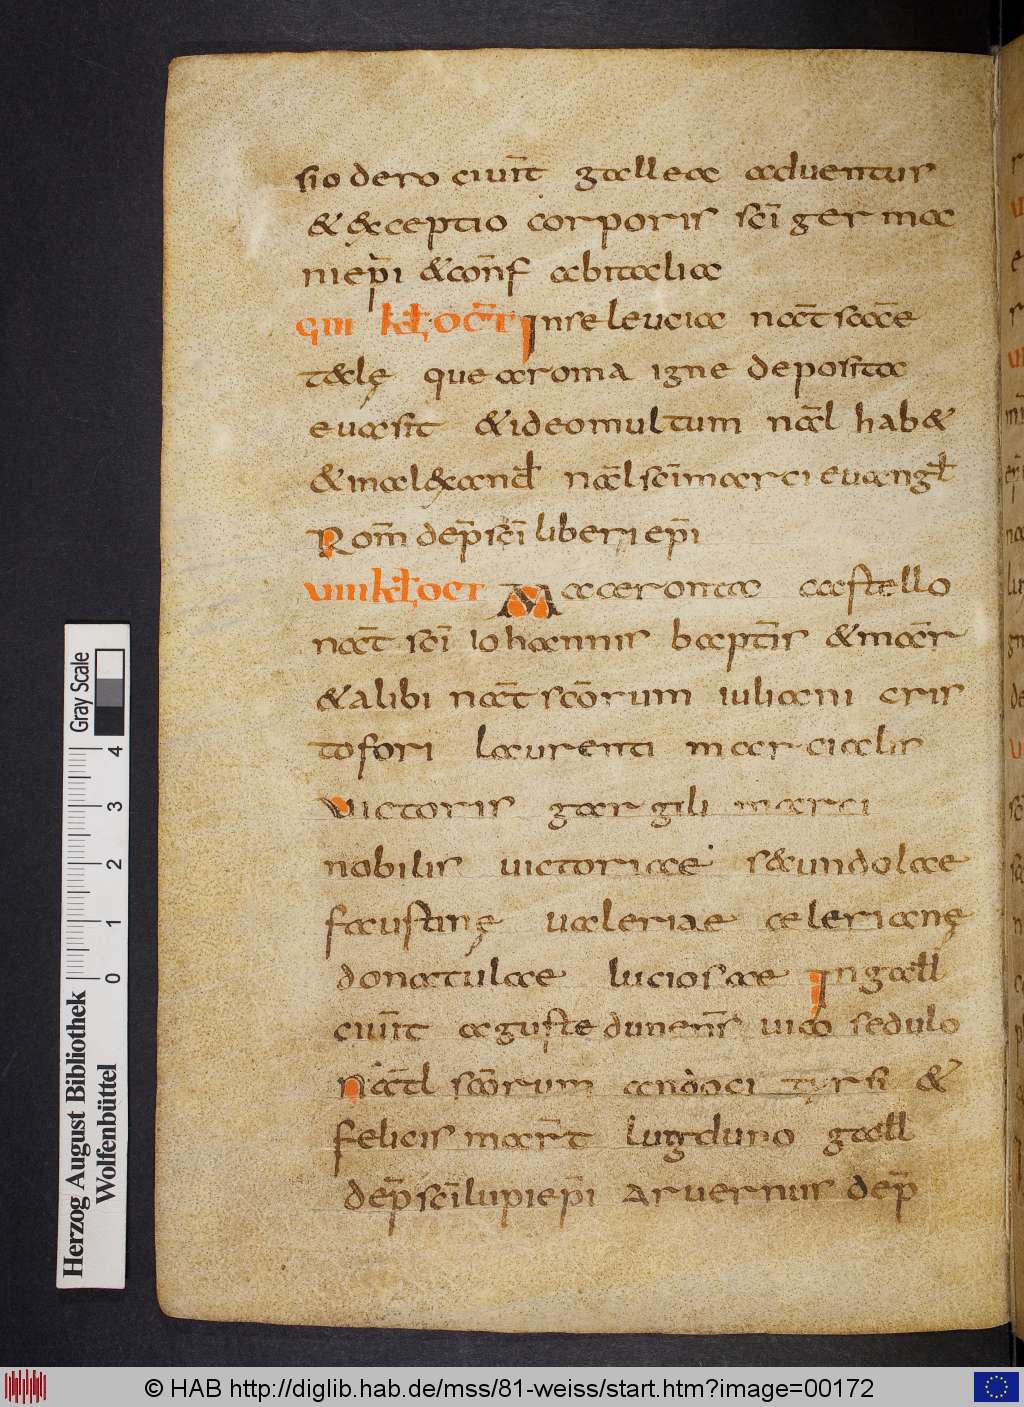 sio dero ciuit̄ galleae aduentus
& exceptio corporis sc̄i germa
ni ep̄i & con̄f abitalia
viiii kł oct̄ In seleucia nat̄ scāe
teclę que a roma igne deposita
euasit & ideo multum nat̄l hab&
& in alexand̄ nat̄l sc̄i marci euangł
Rom̄ dep̄ sc̄i liberi ep̄i
viii kł oct Maceronta castello
nat̄ sc̄i iohannis baptis̄ & mar̄
& alibi nat̄ scōrum iuliani cris
tofori laurenti marcialis
uictoris gargili marci
nobilis uictoriae secundolae
faustinę ualeriae celerianę
donatulae luciosae In gall
ciuit̄ agustedunens̄ uico sedulo
Nat̄l scōrum andoci tyrsi &
felicis mar̄t lugduno gall
dep̄ sc̄i lupi ep̄i aruernus dep̄
Herzog August Bibliothek
Wolfenbüttel
0 1 2 3 4
Gray Scale
© HAB http://diglib.hab.de/mss/81-weiss/start.htm?image=00172